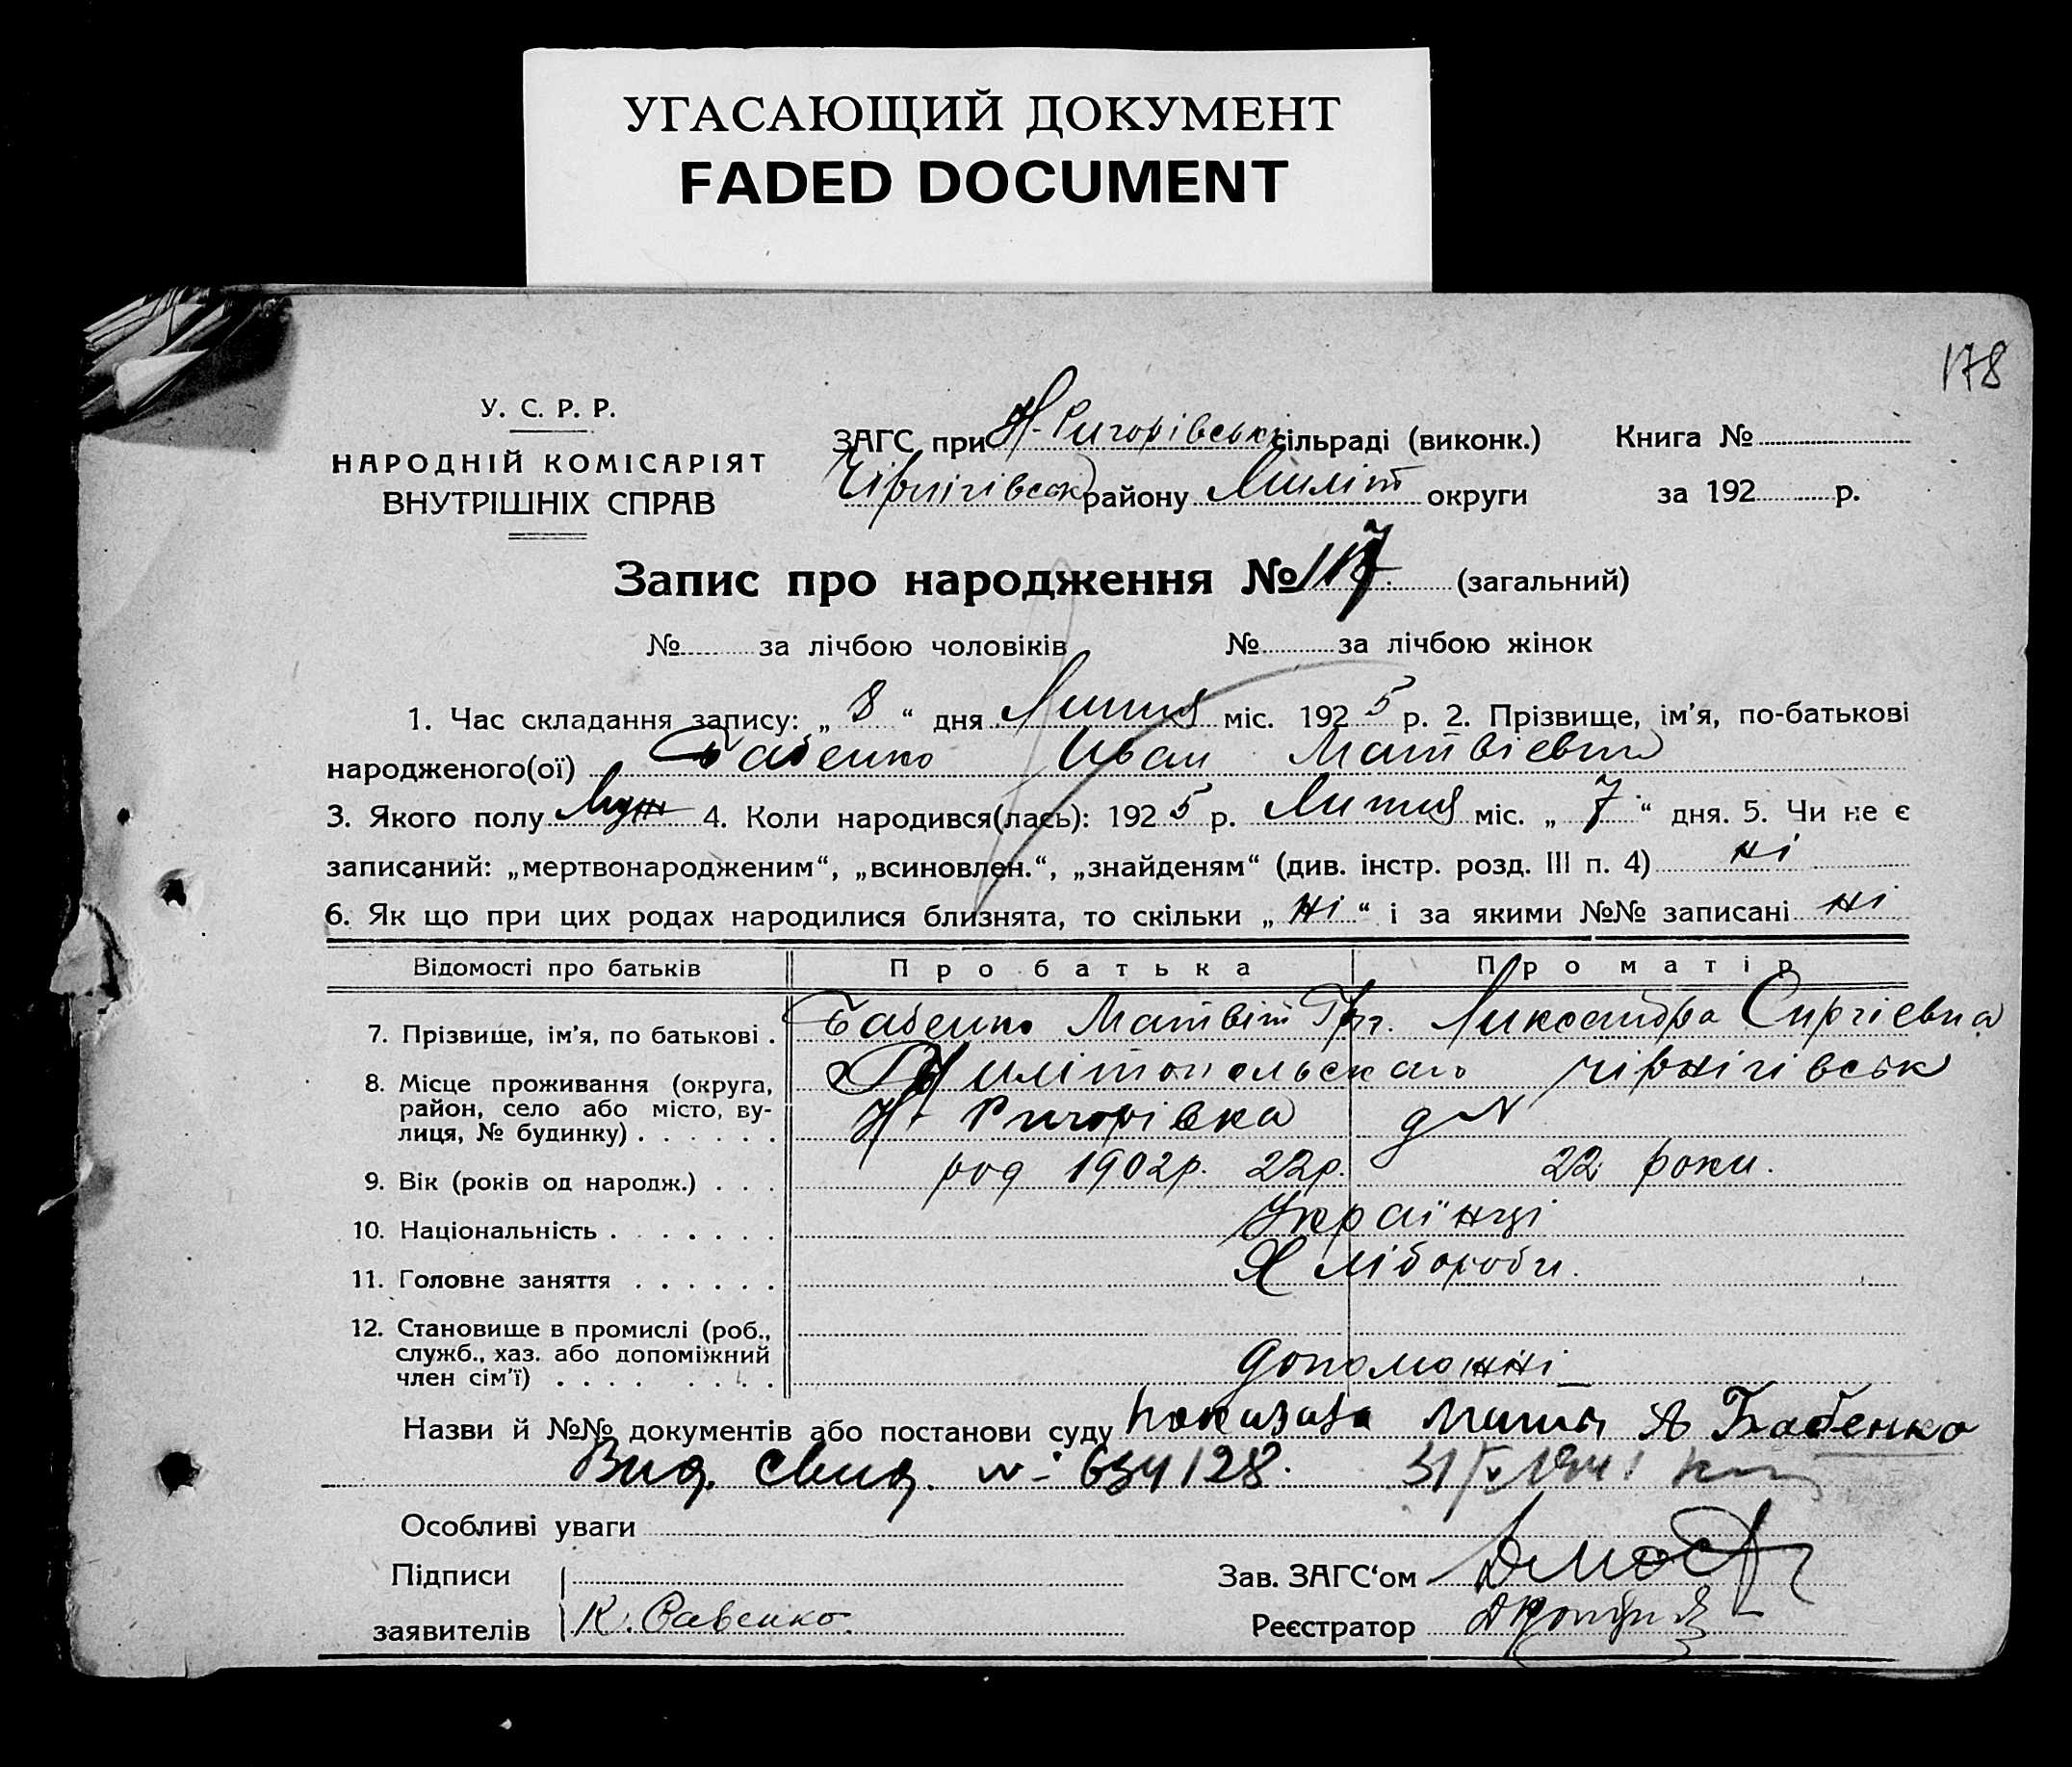 УГАСАЮЩИЙ ДОКУМЕНТ
FADED DOCUMENT
178
У. С. Р. Р.
НАРОДНІЙ КОМІСАРІЯТ
ВНУТРІШНІХ СПРАВ
ЗАГС при Н-Ригорівськ сільраді (виконк.)
Чірнігівськ району Миліт округи
Книга №
за 192 р.
Запис про народження № 117 (загальний)
№ за лічбою чоловіків № за лічбою жінок
1. Час складання запису: „ 8 “ дня Липня міс. 192 5 р. 2. Прізвище, ім'я, по-батькові
народженого(ої) Бабенко Иван Матвієвич
3. Якого полу Муж 4. Коли народився(лась): 192 5 р. Липня міс. „ 7 “ дня. 5. Чи не є
записаний: „мертвонародженим“, „всиновлен.“, „знайденям“ (див. інстр. розд. III п. 4) ні
6. Як що при цих родах народилися близнята, то скільки „ ні “ і за якими №№ записані ні
Відомості про батьків Про батька Про матір
7. Прізвище, ім'я, по батькові . Бабенко Матвій Григ. Ликсандра Сиргієвна
8. Місце проживання (округа, Милітопольского чірнігівськ
район, село або місто, ву- Н. Ригорівка
лиця, № будинку) . . . . . .
9. Вік (років од народж.) . . . род 1902р. 22р. 22 роки.
10. Національність . . . . . . . Українці
11. Головне заняття . . . . . . Хліборобы.
12. Становище в промислі (роб.,
служб., хаз. або допоміжний
член сім'ї) . . . . . . . . допоможні
Назви й №№ документів або постанови суду показала мати А Бабенко
Вид. свид. № 634128. 31/V 1941
Особливі уваги
Підписи
заявителів К. Савенко.
Зав. ЗАГС'ом
Реєстратор